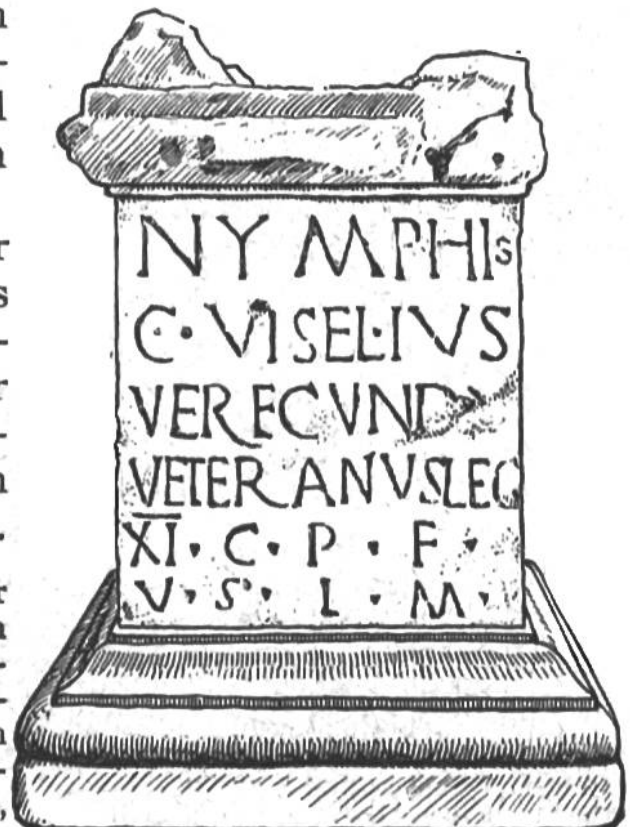 NYMPHIS
C · VISELIVS
VERECVND
VETERANVSLEG
XI · C · P · F ·
V · S · L · M ·